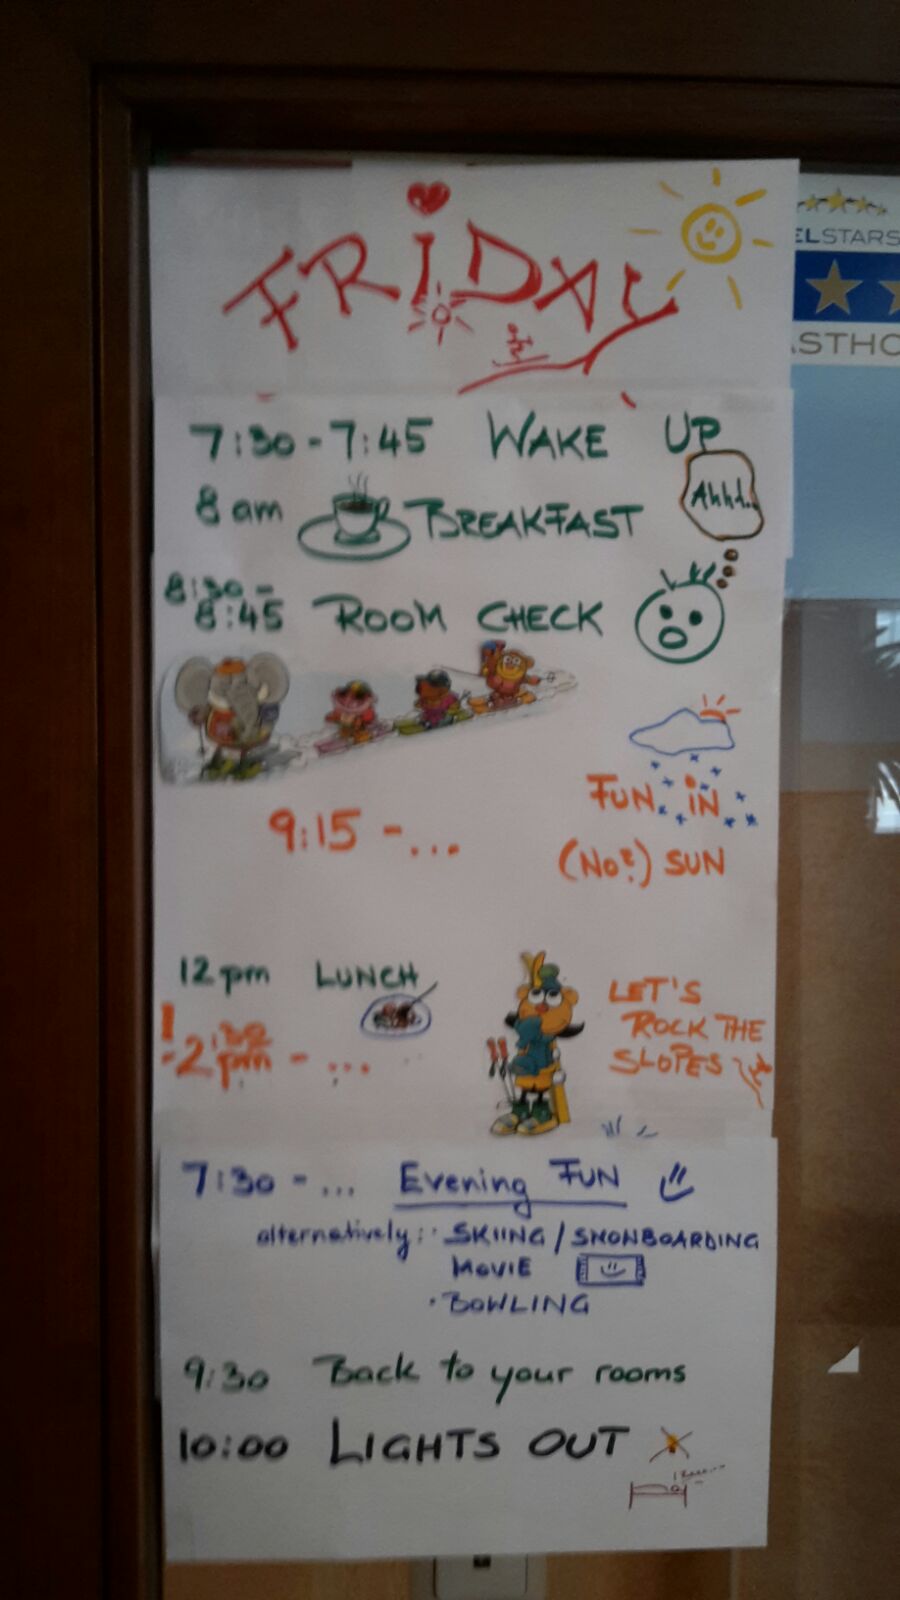 FRiDAY
ELSTARS
ASTHO
7:30 - 7:45 WAKE UP
8 am BREAKFAST
Ahhh..
8:30 -
8:45 ROOM CHECK
FUN iN
9:15 - ...
(NO?) SUN
12 pm LUNCH
LET'S
ROCK THE
SLOPES
pm - ...
7:30 - ... Evening FUN
alternatively: · SKIING / SNOWBOARDING
MOVIE
· BOWLING
9:30 Back to your rooms
10:00 LIGHTS OUT